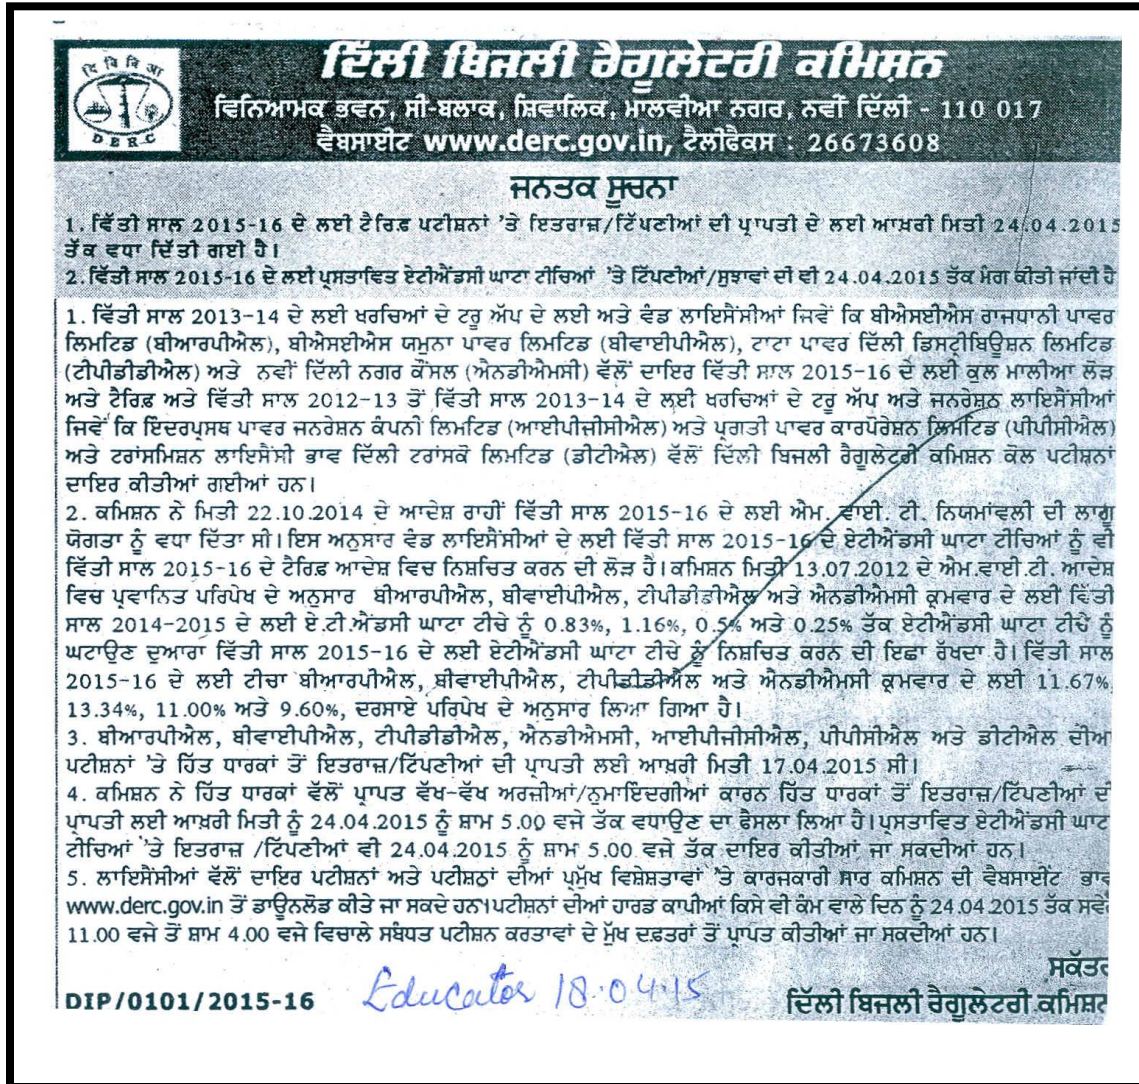 ਦਿੱਲੀ ਬਿਜਲੀ ਰੈਗੂਲੇਟਰੀ ਕਮਿਸ਼ਨ
दि वि नि आ
DERC
ਵਿਨਿਆਮਕ ਭਵਨ, ਸੀ-ਬਲਾਕ, ਸ਼ਿਵਾਲਿਕ, ਮਾਲਵੀਆ ਨਗਰ, ਨਵੀਂ ਦਿੱਲੀ - 110 017
ਵੈਬਸਾਈਟ www.derc.gov.in, ਟੈਲੀਫੈਕਸ : 26673608
ਜਨਤਕ ਸੂਚਨਾ
1. ਵਿੱਤੀ ਸਾਲ 2015-16 ਦੇ ਲਈ ਟੈਰਿਫ਼ ਪਟੀਸ਼ਨਾਂ 'ਤੇ ਇਤਰਾਜ਼/ਟਿੱਪਣੀਆਂ ਦੀ ਪ੍ਰਾਪਤੀ ਦੇ ਲਈ ਆਖ਼ਰੀ ਮਿਤੀ 24.04.2015
ਤੱਕ ਵਧਾ ਦਿੱਤੀ ਗਈ ਹੈ।
2. ਵਿੱਤੀ ਸਾਲ 2015-16 ਦੇ ਲਈ ਪ੍ਰਸਤਾਵਿਤ ਏਟੀਐਂਡਸੀ ਘਾਟਾ ਟੀਚਿਆਂ 'ਤੇ ਟਿੱਪਣੀਆਂ/ਸੁਝਾਵਾਂ ਦੀ ਵੀ 24.04.2015 ਤੱਕ ਮੰਗ ਕੀਤੀ ਜਾਂਦੀ ਹੈ
1. ਵਿੱਤੀ ਸਾਲ 2013-14 ਦੇ ਲਈ ਖਰਚਿਆਂ ਦੇ ਟਰੂ ਅੱਪ ਦੇ ਲਈ ਅਤੇ ਵੰਡ ਲਾਇਸੈਂਸੀਆਂ ਜਿਵੇਂ ਕਿ ਬੀਐਸਈਐਸ ਰਾਜਧਾਨੀ ਪਾਵਰ
ਲਿਮਟਿਡ (ਬੀਆਰਪੀਐਲ), ਬੀਐਸਈਐਸ ਯਮੁਨਾ ਪਾਵਰ ਲਿਮਟਿਡ (ਬੀਵਾਈਪੀਐਲ), ਟਾਟਾ ਪਾਵਰ ਦਿੱਲੀ ਡਿਸਟ੍ਰੀਬਿਊਸ਼ਨ ਲਿਮਟਿਡ
(ਟੀਪੀਡੀਡੀਐਲ) ਅਤੇ ਨਵੀਂ ਦਿੱਲੀ ਨਗਰ ਕੌਂਸਲ (ਐਨਡੀਐਮਸੀ) ਵੱਲੋਂ ਦਾਇਰ ਵਿੱਤੀ ਸਾਲ 2015-16 ਦੇ ਲਈ ਕੁਲ ਮਾਲੀਆ ਲੋੜ
ਅਤੇ ਟੈਰਿਫ਼ ਅਤੇ ਵਿੱਤੀ ਸਾਲ 2012-13 ਤੋਂ ਵਿੱਤੀ ਸਾਲ 2013-14 ਦੇ ਲਈ ਖਰਚਿਆਂ ਦੇ ਟਰੂ ਅੱਪ ਅਤੇ ਜਨਰੇਸ਼ਨ ਲਾਇਸੈਂਸੀਆਂ
ਜਿਵੇਂ ਕਿ ਇੰਦਰਪ੍ਰਸਥ ਪਾਵਰ ਜਨਰੇਸ਼ਨ ਕੰਪਨੀ ਲਿਮਟਿਡ (ਆਈਪੀਜੀਸੀਐਲ) ਅਤੇ ਪ੍ਰਗਤੀ ਪਾਵਰ ਕਾਰਪੋਰੇਸ਼ਨ ਲਿਮਟਿਡ (ਪੀਪੀਸੀਐਲ)
ਅਤੇ ਟਰਾਂਸਮਿਸ਼ਨ ਲਾਇਸੈਂਸੀ ਭਾਵ ਦਿੱਲੀ ਟਰਾਂਸਕੋ ਲਿਮਟਿਡ (ਡੀਟੀਐਲ) ਵੱਲੋਂ ਦਿੱਲੀ ਬਿਜਲੀ ਰੈਗੂਲੇਟਰੀ ਕਮਿਸ਼ਨ ਕੋਲ ਪਟੀਸ਼ਨਾਂ
ਦਾਇਰ ਕੀਤੀਆਂ ਗਈਆਂ ਹਨ।
2. ਕਮਿਸ਼ਨ ਨੇ ਮਿਤੀ 22.10.2014 ਦੇ ਆਦੇਸ਼ ਰਾਹੀਂ ਵਿੱਤੀ ਸਾਲ 2015-16 ਦੇ ਲਈ ਐਮ. ਵਾਈ. ਟੀ. ਨਿਯਮਾਂਵਲੀ ਦੀ ਲਾਗੂ
ਯੋਗਤਾ ਨੂੰ ਵਧਾ ਦਿੱਤਾ ਸੀ।ਇਸ ਅਨੁਸਾਰ ਵੰਡ ਲਾਇਸੈਂਸੀਆਂ ਦੇ ਲਈ ਵਿੱਤੀ ਸਾਲ 2015-16 ਦੇ ਏਟੀਐਂਡਸੀ ਘਾਟਾ ਟੀਚਿਆਂ ਨੂੰ ਵੀ
ਵਿੱਤੀ ਸਾਲ 2015-16 ਦੇ ਟੈਰਿਫ਼ ਆਦੇਸ਼ ਵਿਚ ਨਿਸ਼ਚਿਤ ਕਰਨ ਦੀ ਲੋੜ ਹੈ।ਕਮਿਸ਼ਨ ਮਿਤੀ 13.07.2012 ਦੇ ਐਮ.ਵਾਈ.ਟੀ. ਆਦੇਸ਼
ਵਿਚ ਪ੍ਰਵਾਨਿਤ ਪਰਿਪੇਖ ਦੇ ਅਨੁਸਾਰ ਬੀਆਰਪੀਐਲ, ਬੀਵਾਈਪੀਐਲ, ਟੀਪੀਡੀਡੀਐਲ ਅਤੇ ਐਨਡੀਐਮਸੀ ਕ੍ਰਮਵਾਰ ਦੇ ਲਈ ਵਿੱਤੀ
ਸਾਲ 2014-2015 ਦੇ ਲਈ ਏ.ਟੀ.ਐਂਡਸੀ ਘਾਟਾ ਟੀਚੇ ਨੂੰ 0.83%, 1.16%, 0.5% ਅਤੇ 0.25% ਤੱਕ ਏਟੀਐਂਡਸੀ ਘਾਟਾ ਟੀਚੇ ਨੂੰ
ਘਟਾਉਣ ਦੁਆਰਾ ਵਿੱਤੀ ਸਾਲ 2015-16 ਦੇ ਲਈ ਏਟੀਐਂਡਸੀ ਘਾਟਾ ਟੀਚੇ ਨੂੰ ਨਿਸ਼ਚਿਤ ਕਰਨ ਦੀ ਇਛਾ ਰੱਖਦਾ ਹੈ। ਵਿੱਤੀ ਸਾਲ
2015-16 ਦੇ ਲਈ ਟੀਚਾ ਬੀਆਰਪੀਐਲ, ਬੀਵਾਈਪੀਐਲ, ਟੀਪੀਡੀਡੀਐਲ ਅਤੇ ਐਨਡੀਐਮਸੀ ਕ੍ਰਮਵਾਰ ਦੇ ਲਈ 11.67%
13.34%, 11.00% ਅਤੇ 9.60%, ਦਰਸਾਏ ਪਰਿਪੇਖ ਦੇ ਅਨੁਸਾਰ ਲਿਆ ਗਿਆ ਹੈ।
3. ਬੀਆਰਪੀਐਲ, ਬੀਵਾਈਪੀਐਲ, ਟੀਪੀਡੀਡੀਐਲ, ਐਨਡੀਐਮਸੀ, ਆਈਪੀਜੀਸੀਐਲ, ਪੀਪੀਸੀਐਲ ਅਤੇ ਡੀਟੀਐਲ ਦੀਆ
ਪਟੀਸ਼ਨਾਂ 'ਤੇ ਹਿੱਤ ਧਾਰਕਾਂ ਤੋਂ ਇਤਰਾਜ਼/ਟਿੱਪਣੀਆਂ ਦੀ ਪ੍ਰਾਪਤੀ ਲਈ ਆਖ਼ਰੀ ਮਿਤੀ 17.04.2015 ਸੀ।
4. ਕਮਿਸ਼ਨ ਨੇ ਹਿੱਤ ਧਾਰਕਾਂ ਵੱਲੋਂ ਪ੍ਰਾਪਤ ਵੱਖ-ਵੱਖ ਅਰਜ਼ੀਆਂ/ਨੁਮਾਇੰਦਗੀਆਂ ਕਾਰਨ ਹਿੱਤ ਧਾਰਕਾਂ ਤੋਂ ਇਤਰਾਜ਼/ਟਿੱਪਣੀਆਂ ਦੀ
ਪ੍ਰਾਪਤੀ ਲਈ ਆਖ਼ਰੀ ਮਿਤੀ ਨੂੰ 24.04.2015 ਨੂੰ ਸ਼ਾਮ 5.00 ਵਜੇ ਤੱਕ ਵਧਾਉਣ ਦਾ ਫੈਸਲਾ ਲਿਆ ਹੈ।ਪ੍ਰਸਤਾਵਿਤ ਏਟੀਐਂਡਸੀ ਘਾਟ
ਟੀਚਿਆਂ 'ਤੇ ਇਤਰਾਜ਼ /ਟਿੱਪਣੀਆਂ ਵੀ 24.04.2015 ਨੂੰ ਸ਼ਾਮ 5.00 ਵਜੇ ਤੱਕ ਦਾਇਰ ਕੀਤੀਆਂ ਜਾ ਸਕਦੀਆਂ ਹਨ।
5. ਲਾਇਸੈਂਸੀਆਂ ਵੱਲੋਂ ਦਾਇਰ ਪਟੀਸ਼ਨਾਂ ਅਤੇ ਪਟੀਸ਼ਨਾਂ ਦੀਆਂ ਪ੍ਰਮੁੱਖ ਵਿਸ਼ੇਸ਼ਤਾਵਾਂ 'ਤੇ ਕਾਰਜਕਾਰੀ ਸਾਰ ਕਮਿਸ਼ਨ ਦੀ ਵੈਬਸਾਈਟ ਭਾਵ
www.derc.gov.in ਤੋਂ ਡਾਊਨਲੋਡ ਕੀਤੇ ਜਾ ਸਕਦੇ ਹਨ।ਪਟੀਸ਼ਨਾਂ ਦੀਆਂ ਹਾਰਡ ਕਾਪੀਆਂ ਕਿਸੇ ਵੀ ਕੰਮ ਵਾਲੇ ਦਿਨ ਨੂੰ 24.04.2015 ਤੱਕ ਸਵੇਰੇ
11.00 ਵਜੇ ਤੋਂ ਸ਼ਾਮ 4.00 ਵਜੇ ਵਿਚਾਲੇ ਸਬੰਧਤ ਪਟੀਸ਼ਨ ਕਰਤਾਵਾਂ ਦੇ ਮੁੱਖ ਦਫ਼ਤਰਾਂ ਤੋਂ ਪ੍ਰਾਪਤ ਕੀਤੀਆਂ ਜਾ ਸਕਦੀਆਂ ਹਨ।
ਸਕੱਤਰ
DIP/0101/2015-16 Educator 18.04.15 ਦਿੱਲੀ ਬਿਜਲੀ ਰੈਗੂਲੇਟਰੀ ਕਮਿਸ਼ਨ